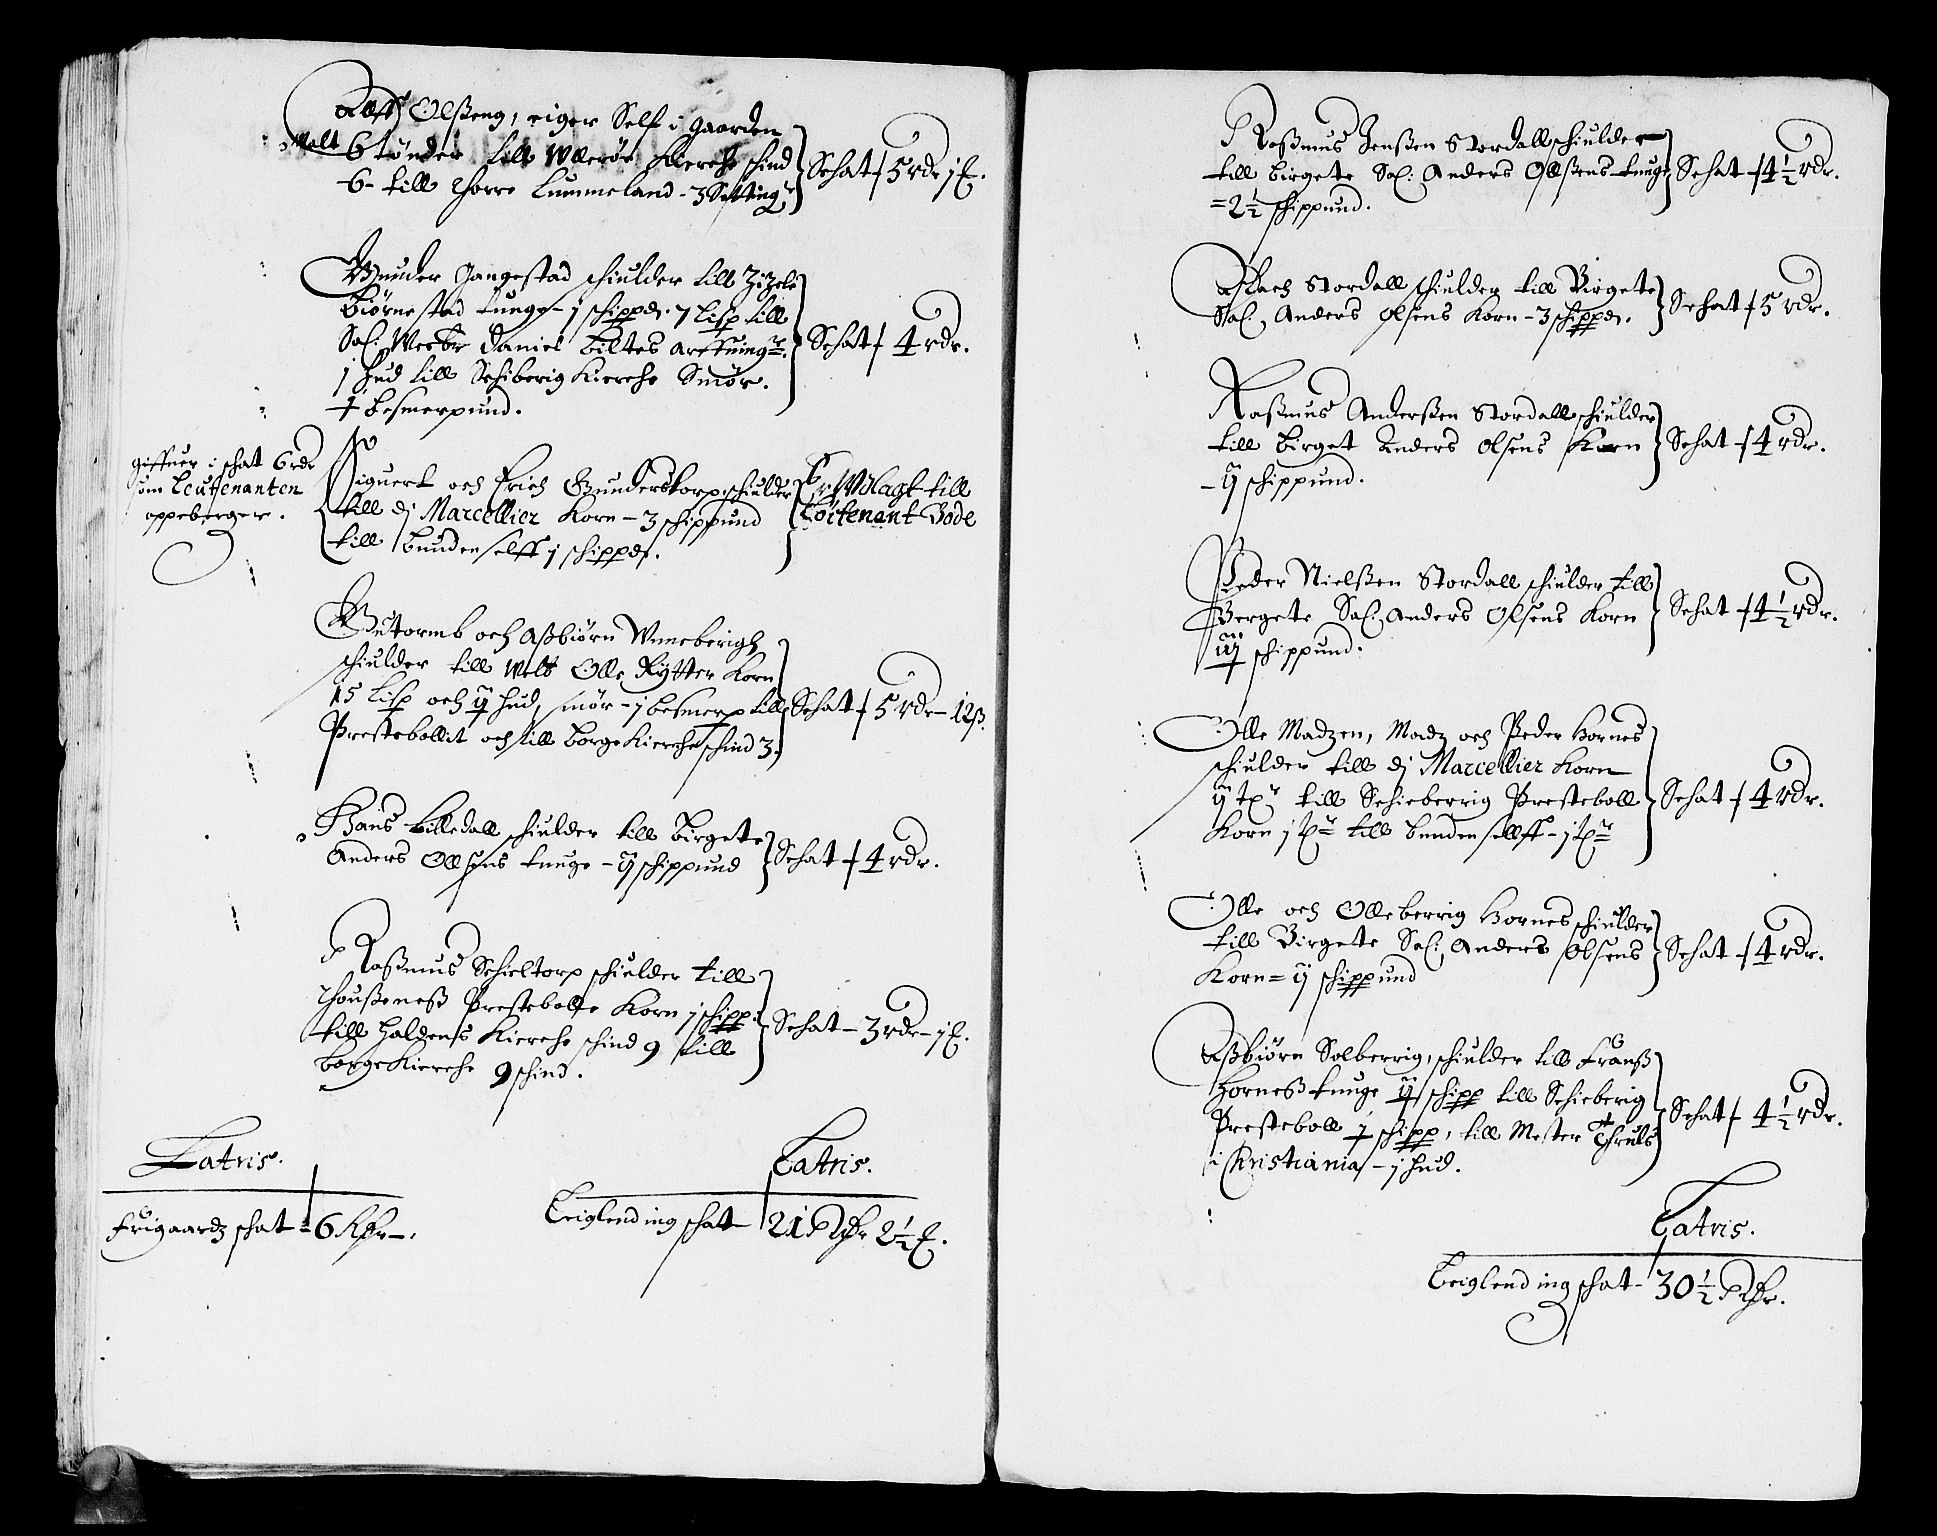 Alff Olßeng, eiger Self i gaarden
Malt 6 tønder till Ullerøe Kierche schind
6 - till Thorre Lummeland - 3 Setting
Schat - 5 rdr j £.
Gunder Gangestad schiulder till Zizele
Biørnestad tunge - j schippd. 7 Lisp till
Sal: Werbr Daniel Biltes Arffuing
j hud till Schiberig Kierche Smør.
j besmerpund.
Schat - 4 rdr.
giffuer i schat 6 rdr
som Leutenanten
oppeberger.
Siguert och Erich Gunderstorp schiulder
till dj Marcellier Korn - 3 schippund
till bunden selff j schippd.
Er Udlagt till
Løitenant Bode
Gutormb och Aßbiørn Winneberigh
schiulder till Welb Olle Rytter Korn
15 Lisp och ij hud, smør - j besmerp till
Prestebollit och till Borge Kierche schind 3.
Schat - 5 rdr - 12 ß.
Hans Lilledall schiulder till Birgete
Anders Ollsens tunge - ij schippund
Schat - 4 rdr.
Raßmus Schieltorp schiulder till
Thoußeneß Prestebolle Korn j schipp:
till Haldens Kierche schind 9 till
Borge Kierche 9 schind.
Schat - 3 rdr - j £.
Latris.
Frigaardz schat - 6 Rdr -.
Latris.
Leiglending schat - 21 Rdr 2½ £.
Raßmus Jenßen Stordall schiulder
till Birgete Sal: Anders Ollßens tunge
= 2½ schippund.
Schat - 4½ rdr.
Aslach Stordall schiulder till Birgete
Sal: Anders Olsens Korn - 3 schippd.
Schat - 5 rdr.
Raßmus Anderßen Stordall schiulder
till Birget Anders Olsens Korn
- ij schippund.
Schat - 4 rdr.
Peder Nielßen Stordall schiulder till
Bergete Sal: Anders Olsens Korn
iij schippund.
Schat - 4½ rdr.
Olle Madzen, Madz och Peder Hornes
schiulder till dj Marcellier Korn
ij tpr till Schieberrig Presteboll
Korn j tpr till bunden sellff - j tpr
Schat - 4 rdr.
Olle och Olleberrig Hornes schiulder
till Birgette Sal: Anders Olsens
Korn = ij schippund
Schat - 4 rdr.
Aßbiørn Solberrig, schiulder till Franß
Horneß tunge ij schipp till Schieberig
Presteboll j schipp, till Mester Thruls
i Christiania - j hud.
Schat - 4½ rdr.
Latris.
Leiglending schat - 30½ Rdr.